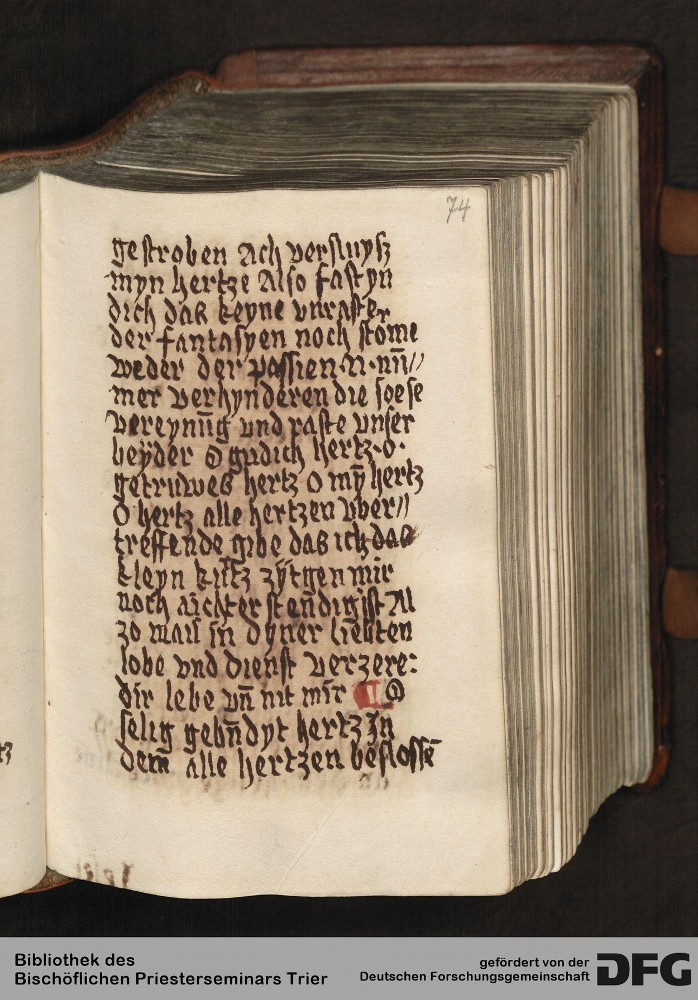 74
gestroben Ach versluysz
myn hertze Also fast yn
dich das keyne vnraste
der fantasyen noch stome
weder der passien · N · nn̄//
mer verhynderen die soese
vereynūg vnd raste vnser
beyder O gudich hertz · o ·
getruwes hertz O mȳ hertz
O hertz alle hertzen vber//
treffende gibe das ich das
kleyn kurtz zytgen mir
noch
zo mail in dyner liebten
lobe vnd dienst verzere:
dir lebe vn̄ nit mir O
selig hertz In
dem alle hertzen beslossē
Bibliothek des
Bischöflichen Priesterseminars Trier
gefördert von der
Deutschen Forschungsgemeinschaft
DFG